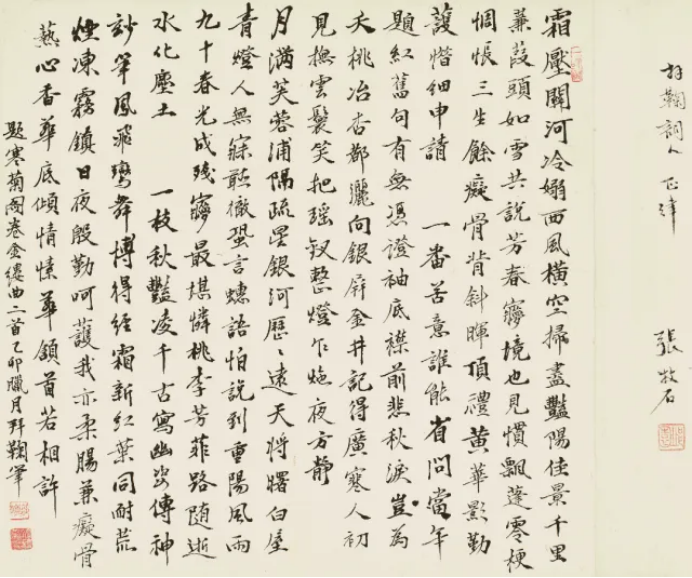 拜鞠詞人正律
張牧石
霜壓關河冷嫋西風橫空掃盡豔陽佳景千里
蒹葭頭如雪共說芳春夢境也見慣飄蓬零梗
惆悵三生餘癡骨背斜暉頂禮黃華影勤
護惜細申請 一番苦意誰能省問當年
題紅舊句有無憑證袖底襟前悲秋淚豈為
夭桃冶杏都灑向銀屏金井記得廣寒人初
見撫雲鬟笑把瑶釵整燈乍灺夜方靜
月滿芙蓉浦隔疏星銀河歷〻遠天將曙白屋
青燈人無寐聽徹蛩言蟪語怕說到重陽風雨
九十春光成殘夢最堪憐桃李芳菲路隨逝
水化塵土 一枝秋豔凌千古寫幽姿傳神
妙筆鳳飛鸞舞博得經霜新紅葉同耐荒
煙凍霧鎮日夜殷勤呵護我亦柔腸兼癡骨
爇心香華底傾情愫華頷首若相許
題寒菊圖卷金縷曲二首乙卯臘月拜鞠筆